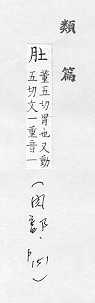 類篇
肚
董五切胃也又動
五切文一重音一
(肉部.p.151)